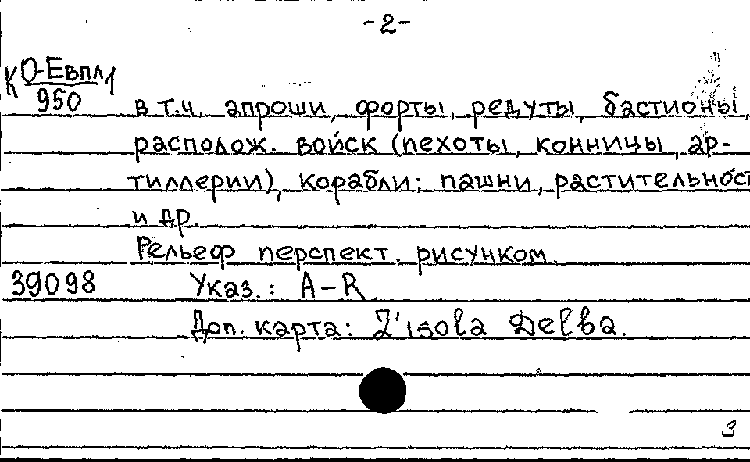 -2-
К О-Евпл 1
950
в т.ч. апроши, форты, редуты, бастионы,
располож. войск (пехоты, конницы, ар-
тиллерии), корабли; пашни, растительност
и др.
Рельеф перспект. рисунком.
39098 Указ.: A-R
Доп. карта: L'isola Delba.
3